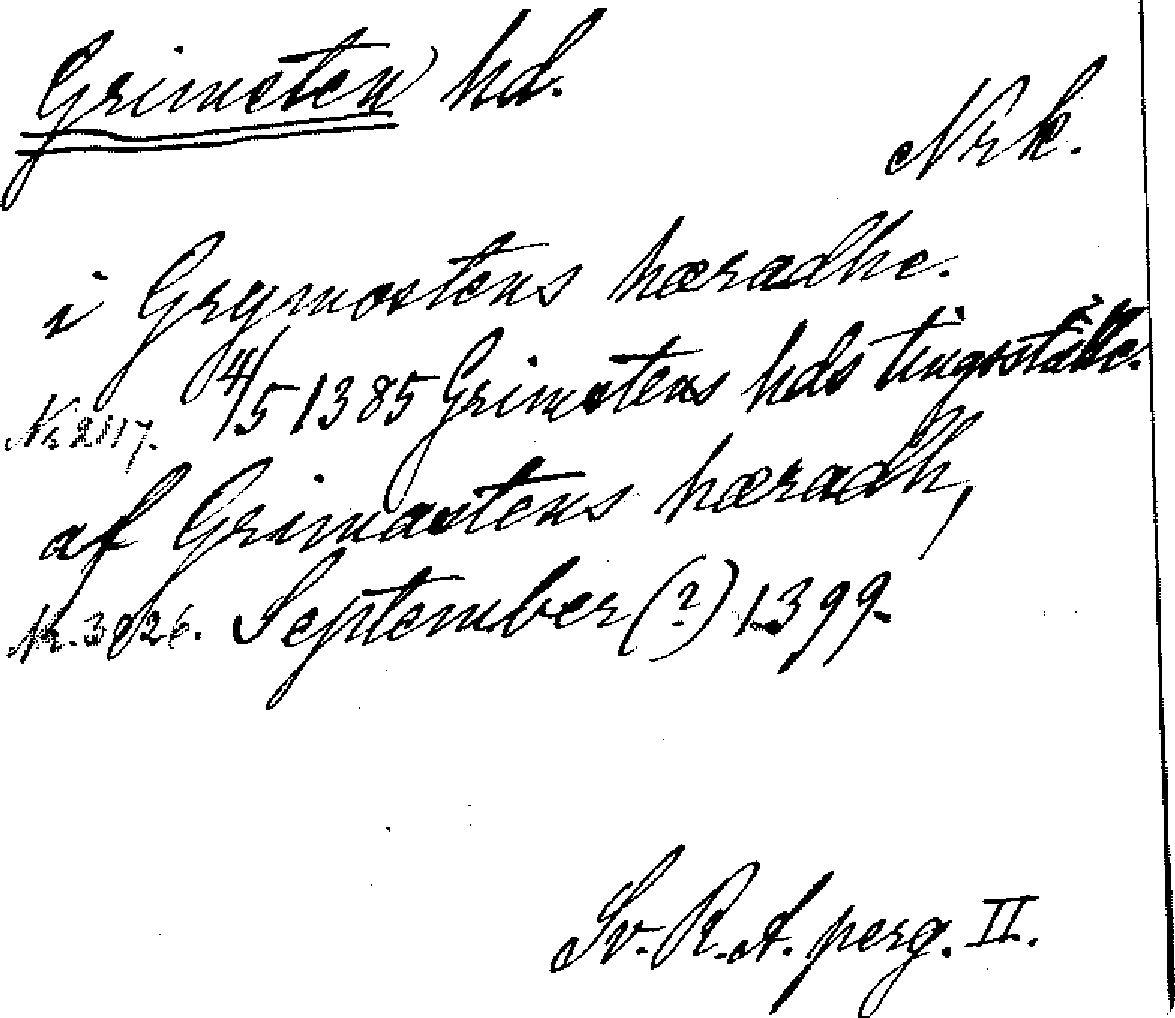 Grimsten hd.
Nrk.
i Grymostens hæradhe.
Nr 2117. 4/5 1385 Grimstens hds tingsställe.
af Grimastens hæradh,
Nr. 3026. September (?) 1399.
Sv. R. A. perg. II.